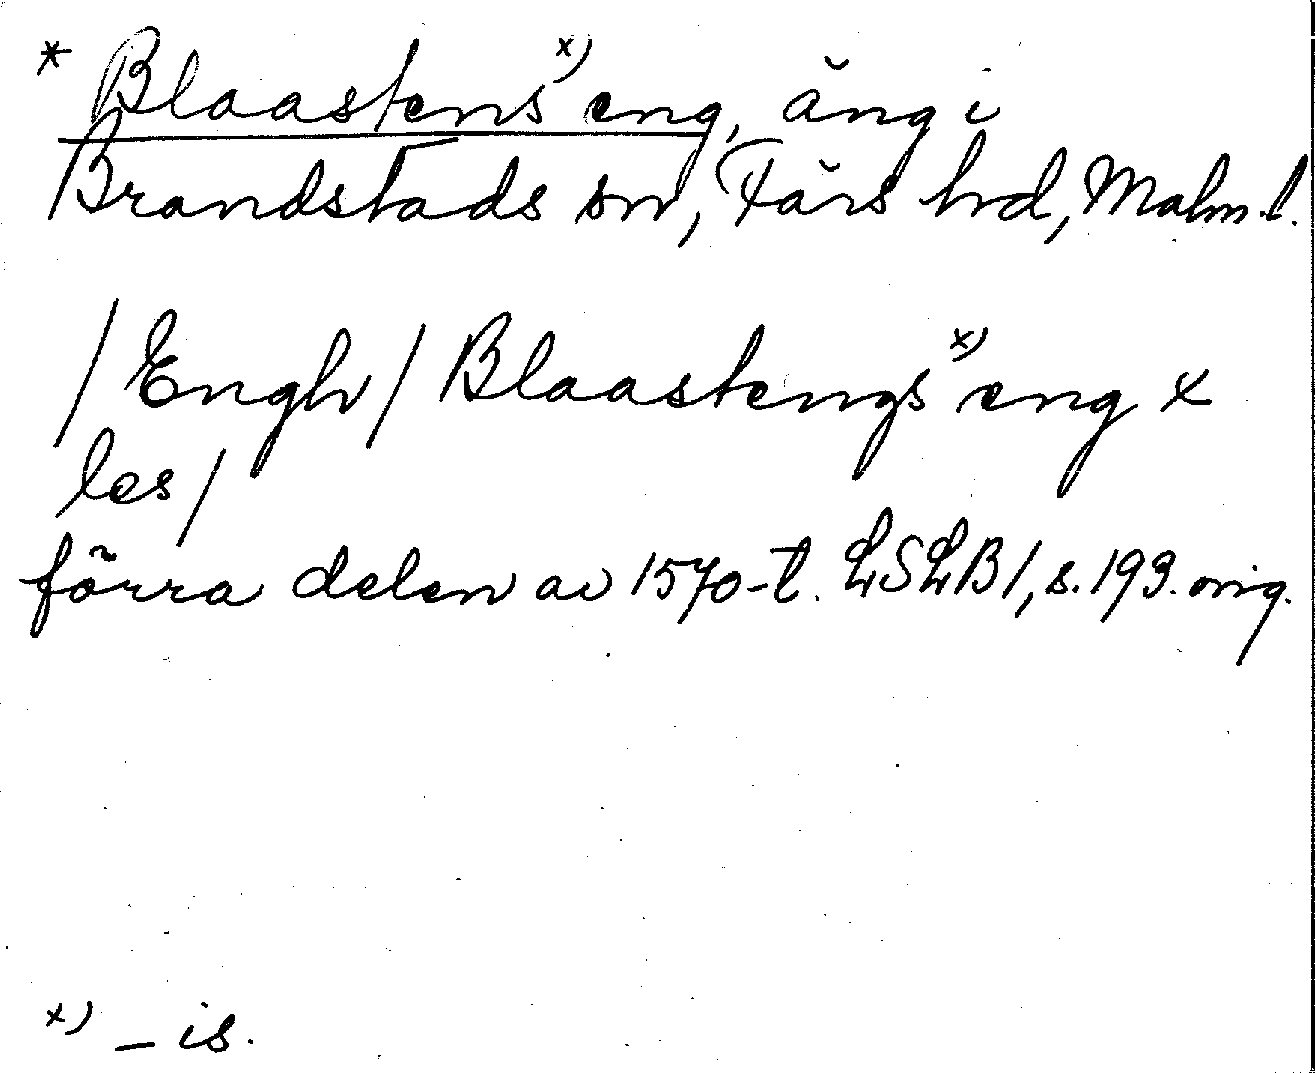 * Blaastens x) eng, äng i
Brandstads sn, Färs hd, Malm. l.
/Engh/ Blaastengs x) eng x
les/
förra delen av 1570-t. LSLB 1, s. 193. orig.
x) – is.